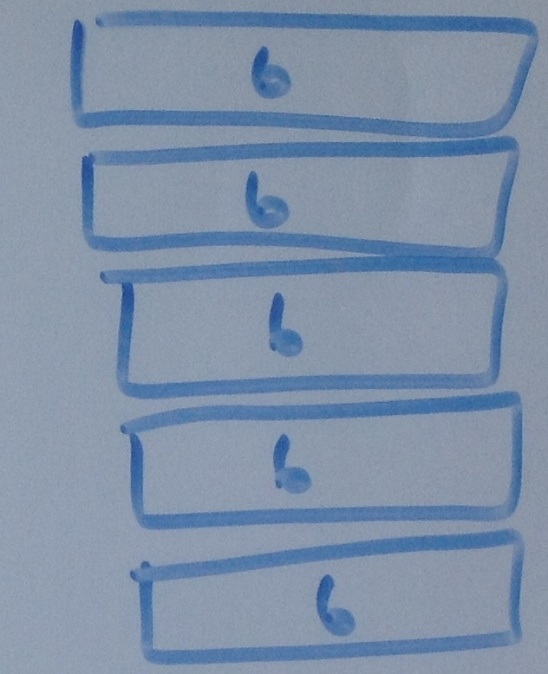 6
6
6
6
6